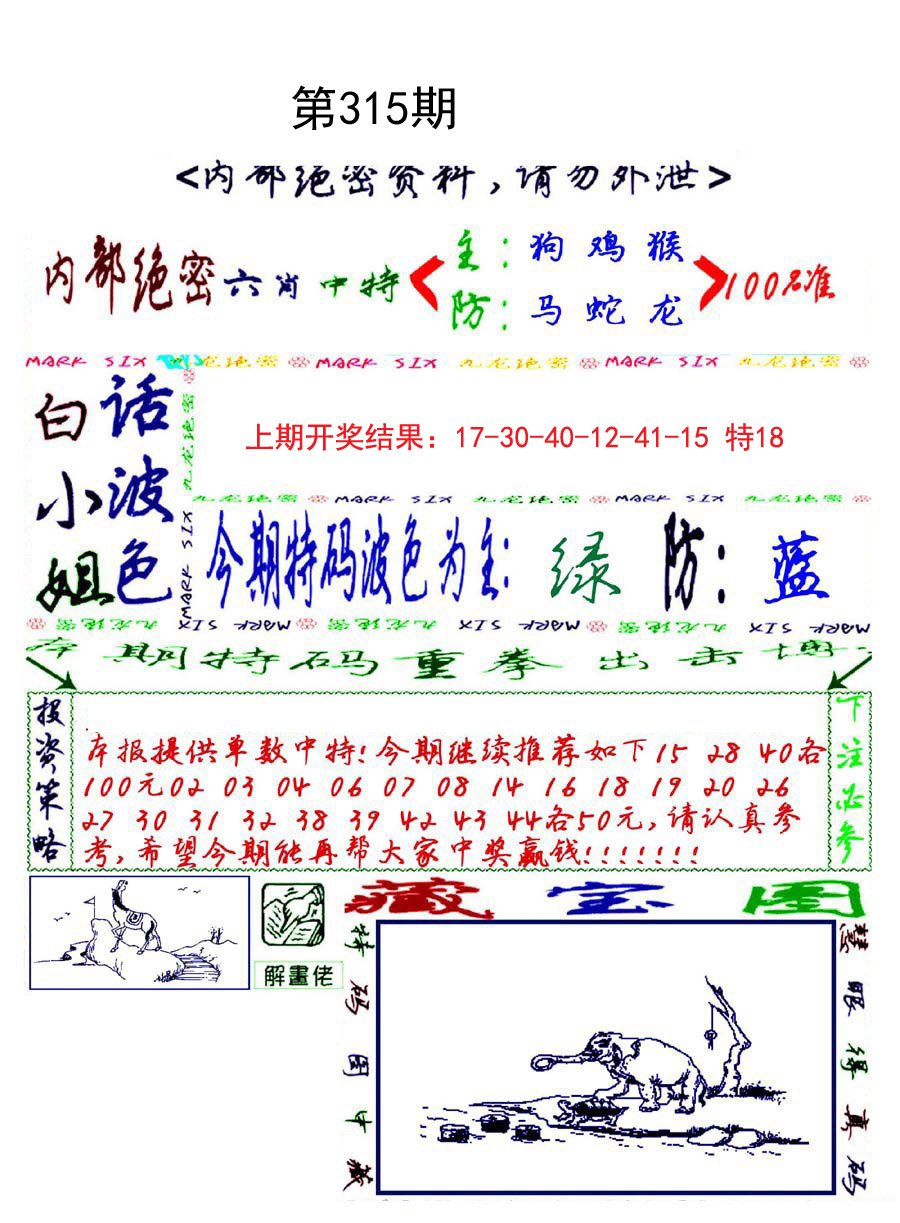 第315期
<内部绝密资料,请勿外泄>
内部绝密六肖中特
主:狗鸡猴
防:马蛇龙
100%准
MARK SIX 九龙绝密 MARK SIX 九龙绝密 MARK SIX 九龙绝密
白话
小波
姐色
九龙绝密
MARK SIX
上期开奖结果：17-30-40-12-41-15 特18
九龙绝密 MARK SIX 九龙绝密 MARK SIX 九龙绝密
今期特码波色为主:绿 防:蓝
MARK SIX 九龙绝密 MARK SIX 九龙绝密 MARK SIX 九龙绝密 MARK SIX
本期特码重拳出击博
投资策略
本报提供单数中特!今期继续推荐如下15 28 40各
100元02 03 04 06 07 08 14 16 18 19 20 26
27 30 31 32 38 39 42 43 44各50元,请认真参
考,希望今期能再帮大家中奖赢钱!!!!!!!
下注必参
解畫佬
藏宝图
特码图中藏
慧眼得真码